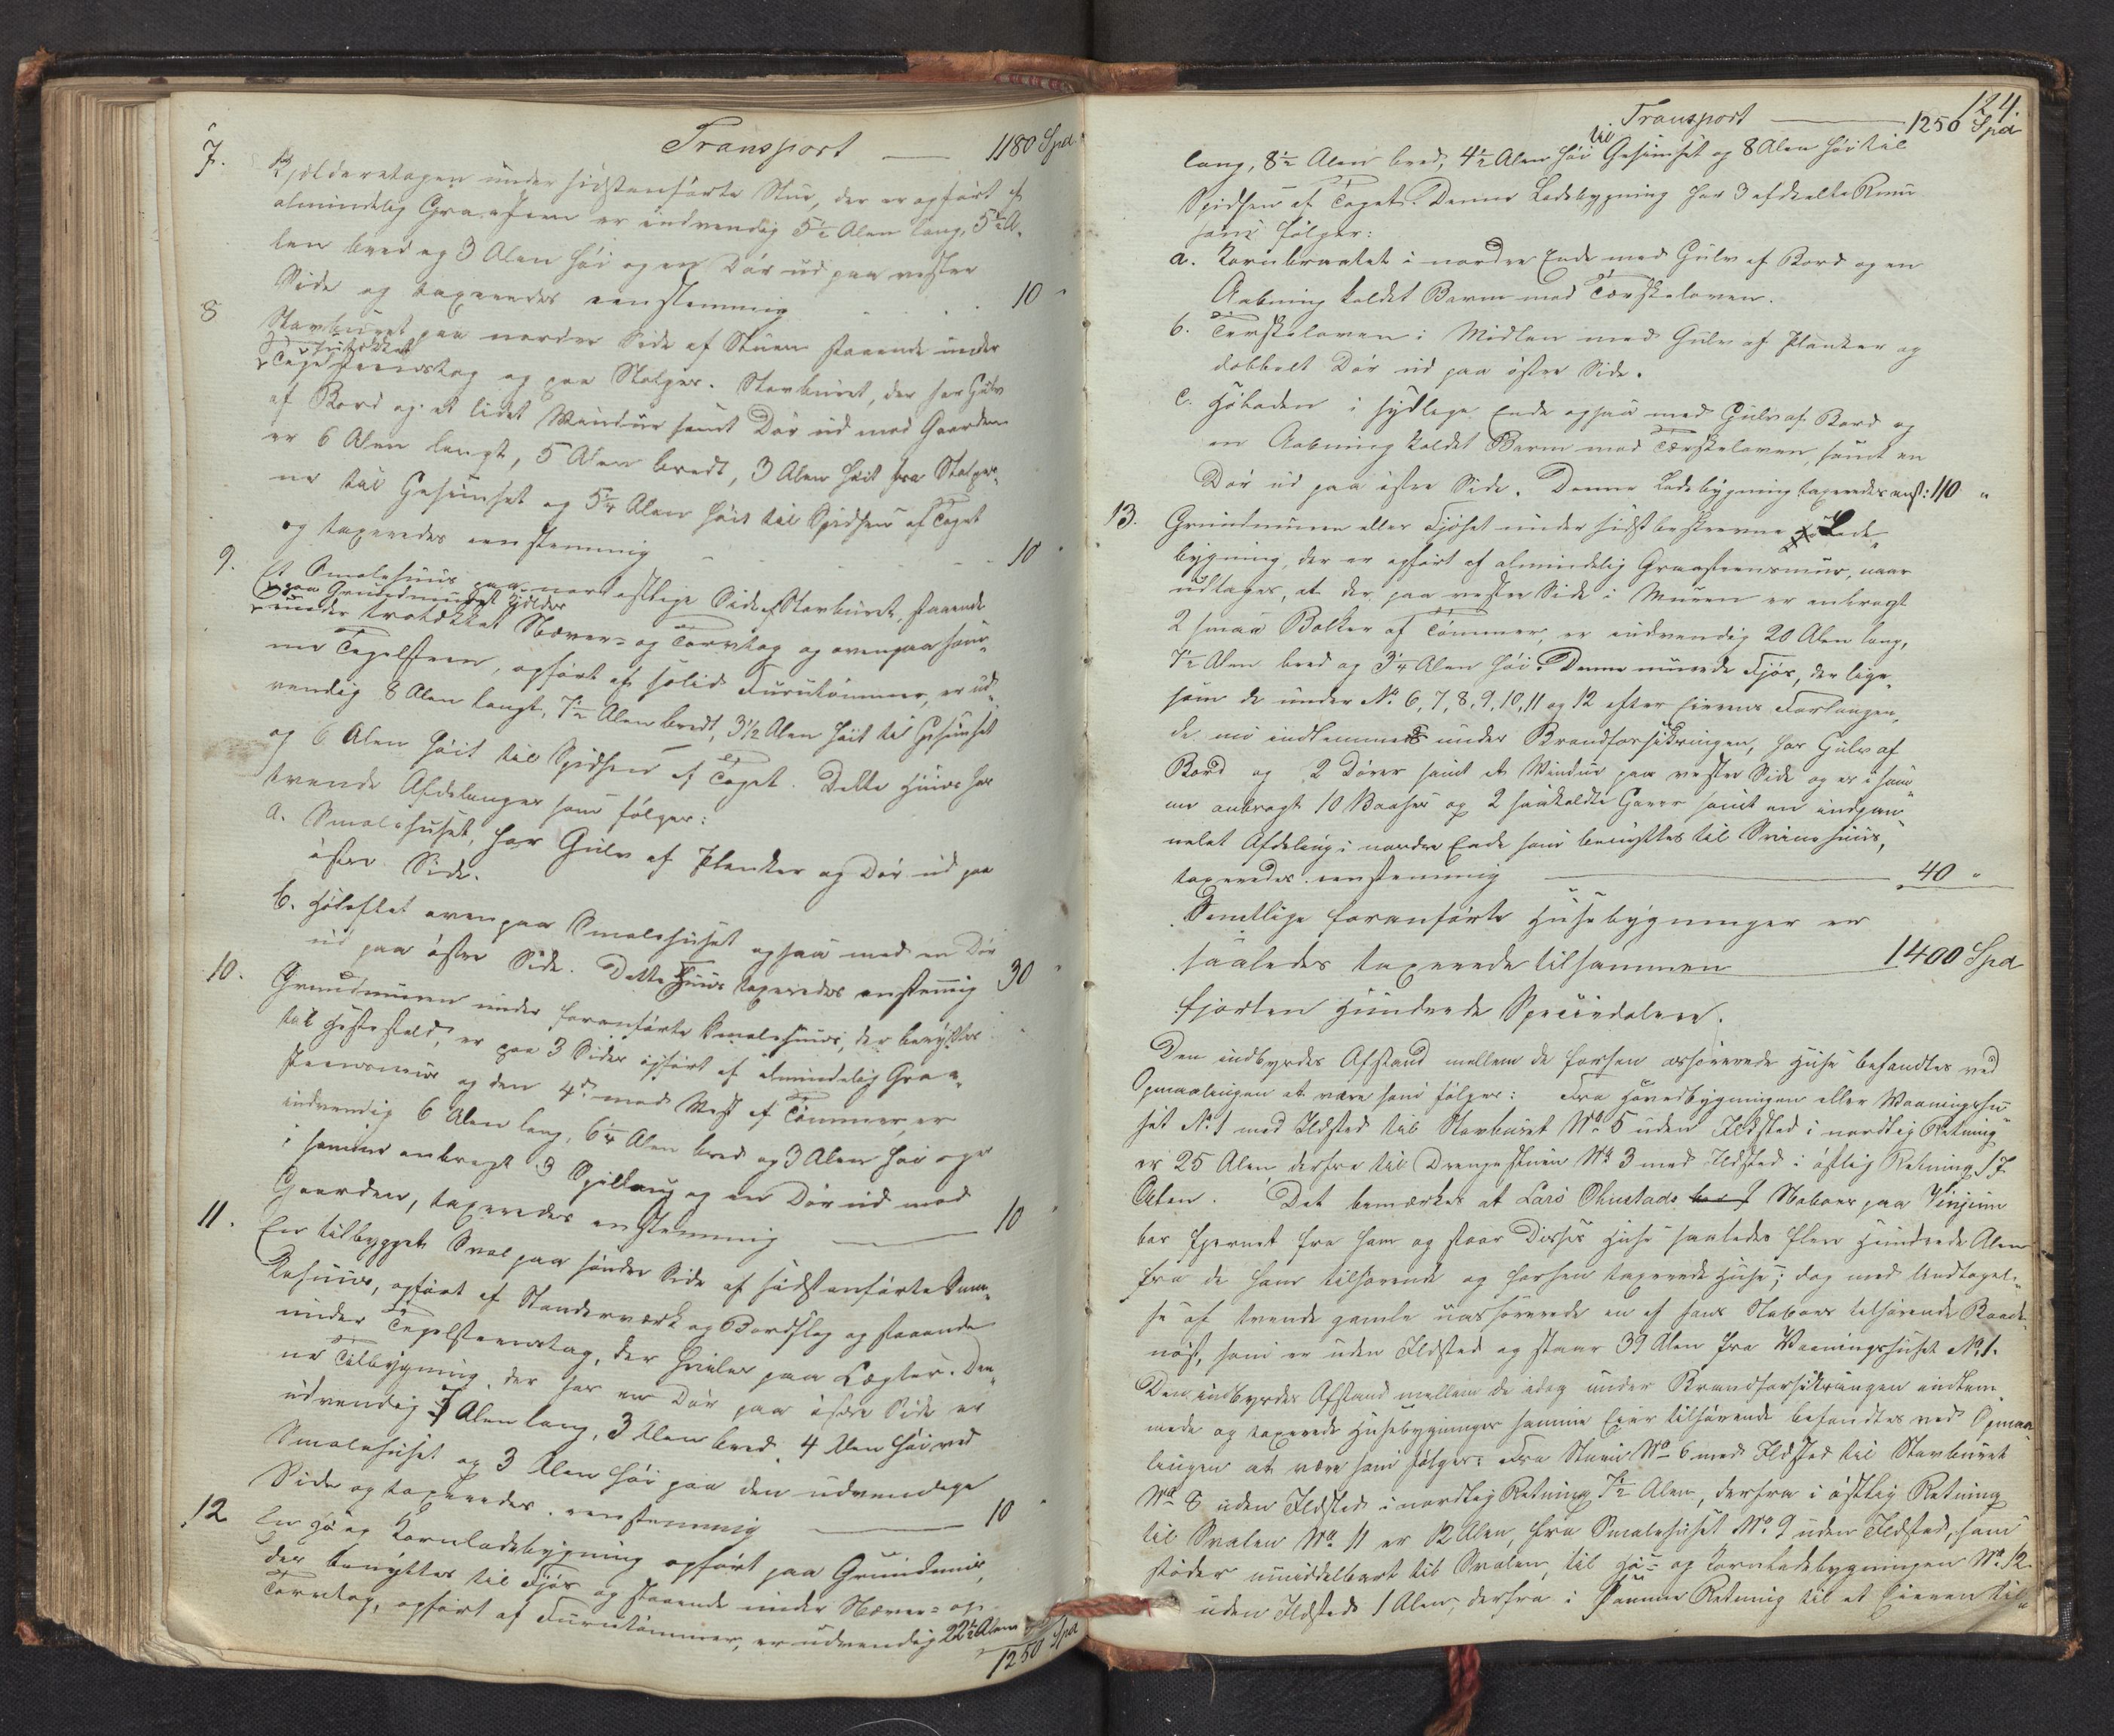 Transport — 1180 Spd
7. Kjelderetagen under sidstanførte Stue, der er opført af
almindelig Graasteen er indvendig 5½ Alen lang, 5½ A-
len bred og 3 Alen høi og en Dør ud paa vestre
Side og taxeredes eenstemmig 10 "
8 Stavburet paa nordre Side af Stuen staaende under
Tagsteenstag og paa Stolper. Stavburet, der har Gulv
af Bord og et lidet Vindue samt Dør ud mod Gaarden
er 6 Alen langt, 5 Alen bredt, 3 Alen høit fra Stolper-
ne til Gesimset og 5¼ Alen høit til Spidsen af Taget
og taxeredes eenstemmig 10 "
9. Et Smalehuus paa nordostlige Side af Stavburet, staaende
paa Grundmuret Kjelder
under trotækket Næver- og Torvtag og ovenpaa sam-
me Tegelsteen, opført af solid Furutømmer, er ud-
vendig 8 Alen langt, 7½ Alen bredt, 3½ Alen høit til Gesimset
og 6 Alen høit til Spidsen af Taget. Dette Huus har
tvende Afdelinger som følger:
a. Smalehuset, har Gulv af Planker og Dør ud paa
østre Side.
b. Høloftet ovenpaa Smalehuset ogsaa med en Dør
ud paa østre Side. Dette Huus taxeredes eenstemmig 30 "
10. Grundmuren under foranførte Smalehuus, der benyttes
til Hestestald, er paa 3 Sider opført af almindelig Graa-
steensmuur og den 4de mod Vest af Tømmer, er
indvendig 6 Alen lang, 6¼ Alen bred og 3 Alen høi og er
i samme anbragt 3 Spilltaug og en Dør ud mod
Gaarden, taxeredes eenstemmig — 10 "
11. En tilbygget Sval paa søndre Side af sidstanførte Sma-
lehuus, opført af Standerværk og Bordslag og staaende
under Tegelsteenstag, der hviler paa Lægter. Den-
ne Tilbygning, der har en Dør paa østre Side er
udvendig 7 Alen lang, 3 Alen bred, 4 Alen høi ved
Smalehuset og 3 Alen høi paa den udvendige
Side og taxeredes eenstemmig — 10 "
12 En Hø og Kornladebygning opført paa Grundmuur,
der benyttes til Fjøs og staaende under Næver- og
Torvtag, opført af Furutømmer, er udvendig 22½ Alen
1250 Spd
124.
Transport — 1250 Spd
lang, 8½ Alen bred, 4½ Alen høi til Gesimset og 8 Alen høi til
Spidsen af Taget. Denne Ladebygning har 3 afdeelte Rum
som følger:
a. Kornbraatet i nordre Ende med Gulv af Bord og en
Aabning kaldet Barm mod Tærskeloven.
b. Tærskeloven i Midten med Gulv af Planker og
dobbelt Dør ud paa østre Side.
c. Høladen i sydlige Ende ogsaa med Gulv af Bord og
en Aabning kaldet Barm mod Tærskeloven, samt en
Dør ud paa østre Side. Denne Ladebygning taxeredes enst: 110 "
13. Grundmuren eller Fjøset under sidstbeskrevne Lade-
bygning, der er opført af almindelig Graasteensmuur, naar
udtages, at der paa vestre Side i Muren er anbragt
2 smaa Bolker af Tømmer, er indvendig 20 Alen lang,
7½ Alen bred og 3¼ Alen høi. Denne murede Fjøs, der lige-
som de under No. 6, 7, 8, 9, 10, 11 og 12 efter Eierens Forlangen-
de nu indlemmes under Brandforsikringen, har Gulv af
Bord og 2 Dører samt et Vindue paa vestre Side og er i sam-
me anbragt 10 Baaser og 2 saakaldte Garer samt en indpan-
nelet Afdeling i nordre Ende som benyttes til Sviinehuus,
taxeredes eenstemmig — 40 "
Samtlige foranførte Husebygninger er
saaledes taxerede tilsammen — 1400 Spd
fjorten Hundrede Speciedaler.
Den indbyrdes Afstand mellem de forhen assurerede Huse befandtes ved
Opmaalingen at være som følger: Fra Hovedbygningen eller Vaaningshu-
set No. 1 med Ildsted til Stavburet No. 5 uden Ildsted i nordlig Retning
er 25 Alen derfra til Drengestuen No. 3 med Ildsted i østlig Retning 17
Alen. Det bemærkes at Lars Ohnstads Naboer paa Vinjum
bor fjernet fra ham og staar Disses Huse saaledes flere Hundrede Alen
fra de ham tilhørende og forhen taxerede Huse; dog med Undtagel-
se af tvende gamle uassurerede en af hans Naboer tilhørende Baade-
nøst, som er uden Ildsted og staar 39 Alen fra Vaaningshuset No. 1.
Den indbyrdes Afstand mellem de idag under Brandforsikringen indlem-
mede og taxerede Husebygninger samme Eier tilhørende befandtes ved Opmaa-
lingen at være som følger: Fra Stuen No. 6 med Ildsted til Stavburet
No. 8 uden Ildsted i nordlig Retning 7½ Alen, derfra i østlig Retning
til Svalen No. 11 er 12 Alen, fra Smalehuset No. 9 uden Ildsted, som
støder umiddelbart til Svalen, til Hø- og Kornladebygningen No. 12
uden Ildsted 1 Alen, derfra i samme Retning til et Eieren til-